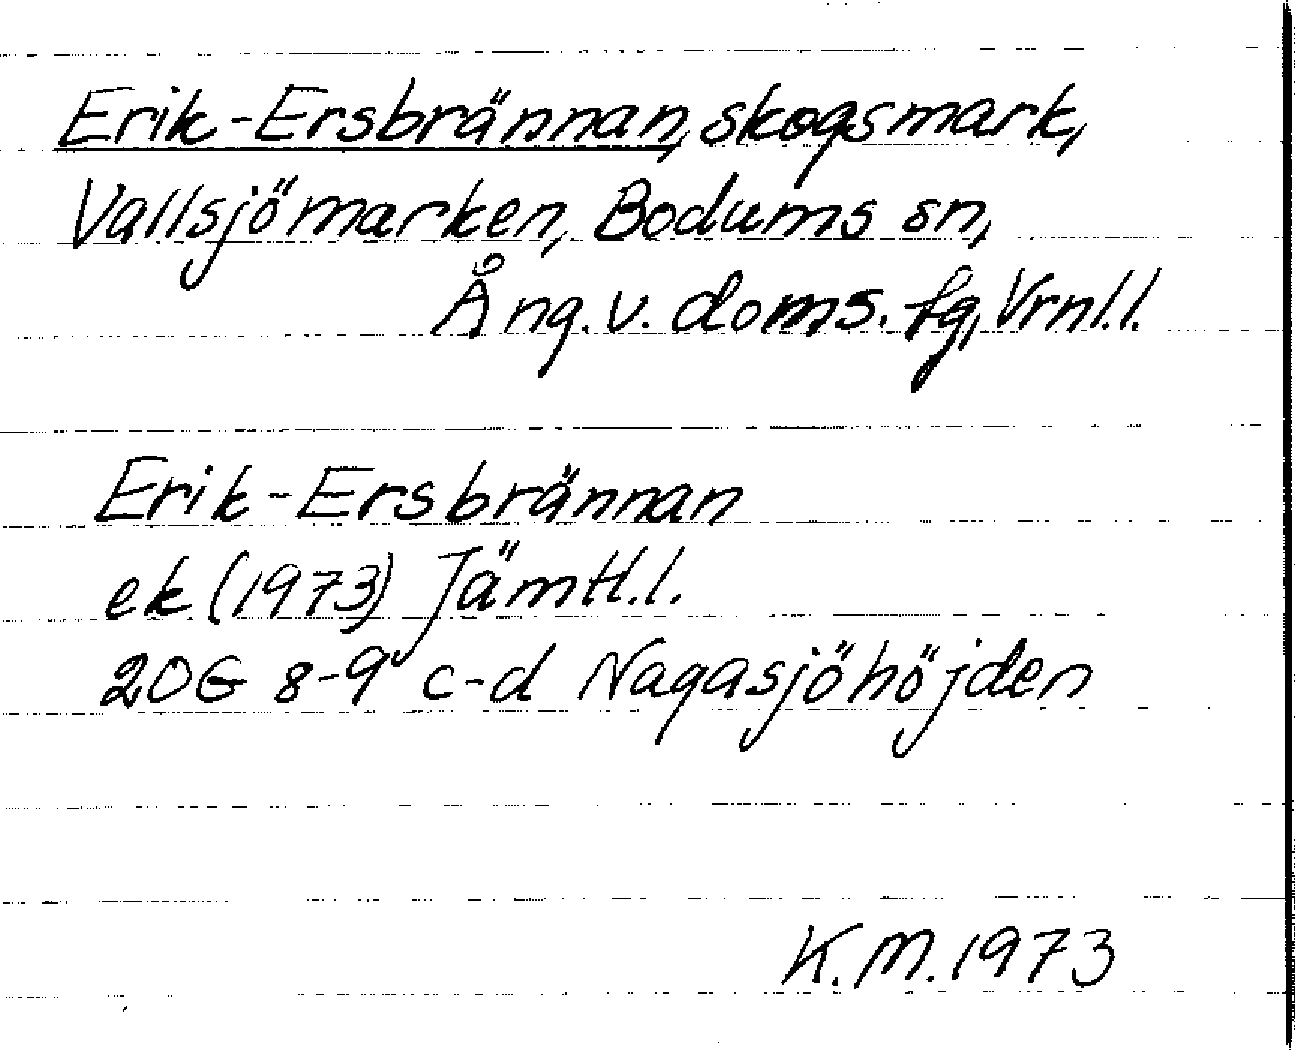 Erik-Ersbrännan, skogsmark,
Vallsjömarken, Bodums sn,
Ång. v. doms. fg, Vrnl.l.
Erik-Ersbrännan
ek (1973) Jämtl.l.
20G 8-9 c-d Nagasjöhöjden
K.M. 1973